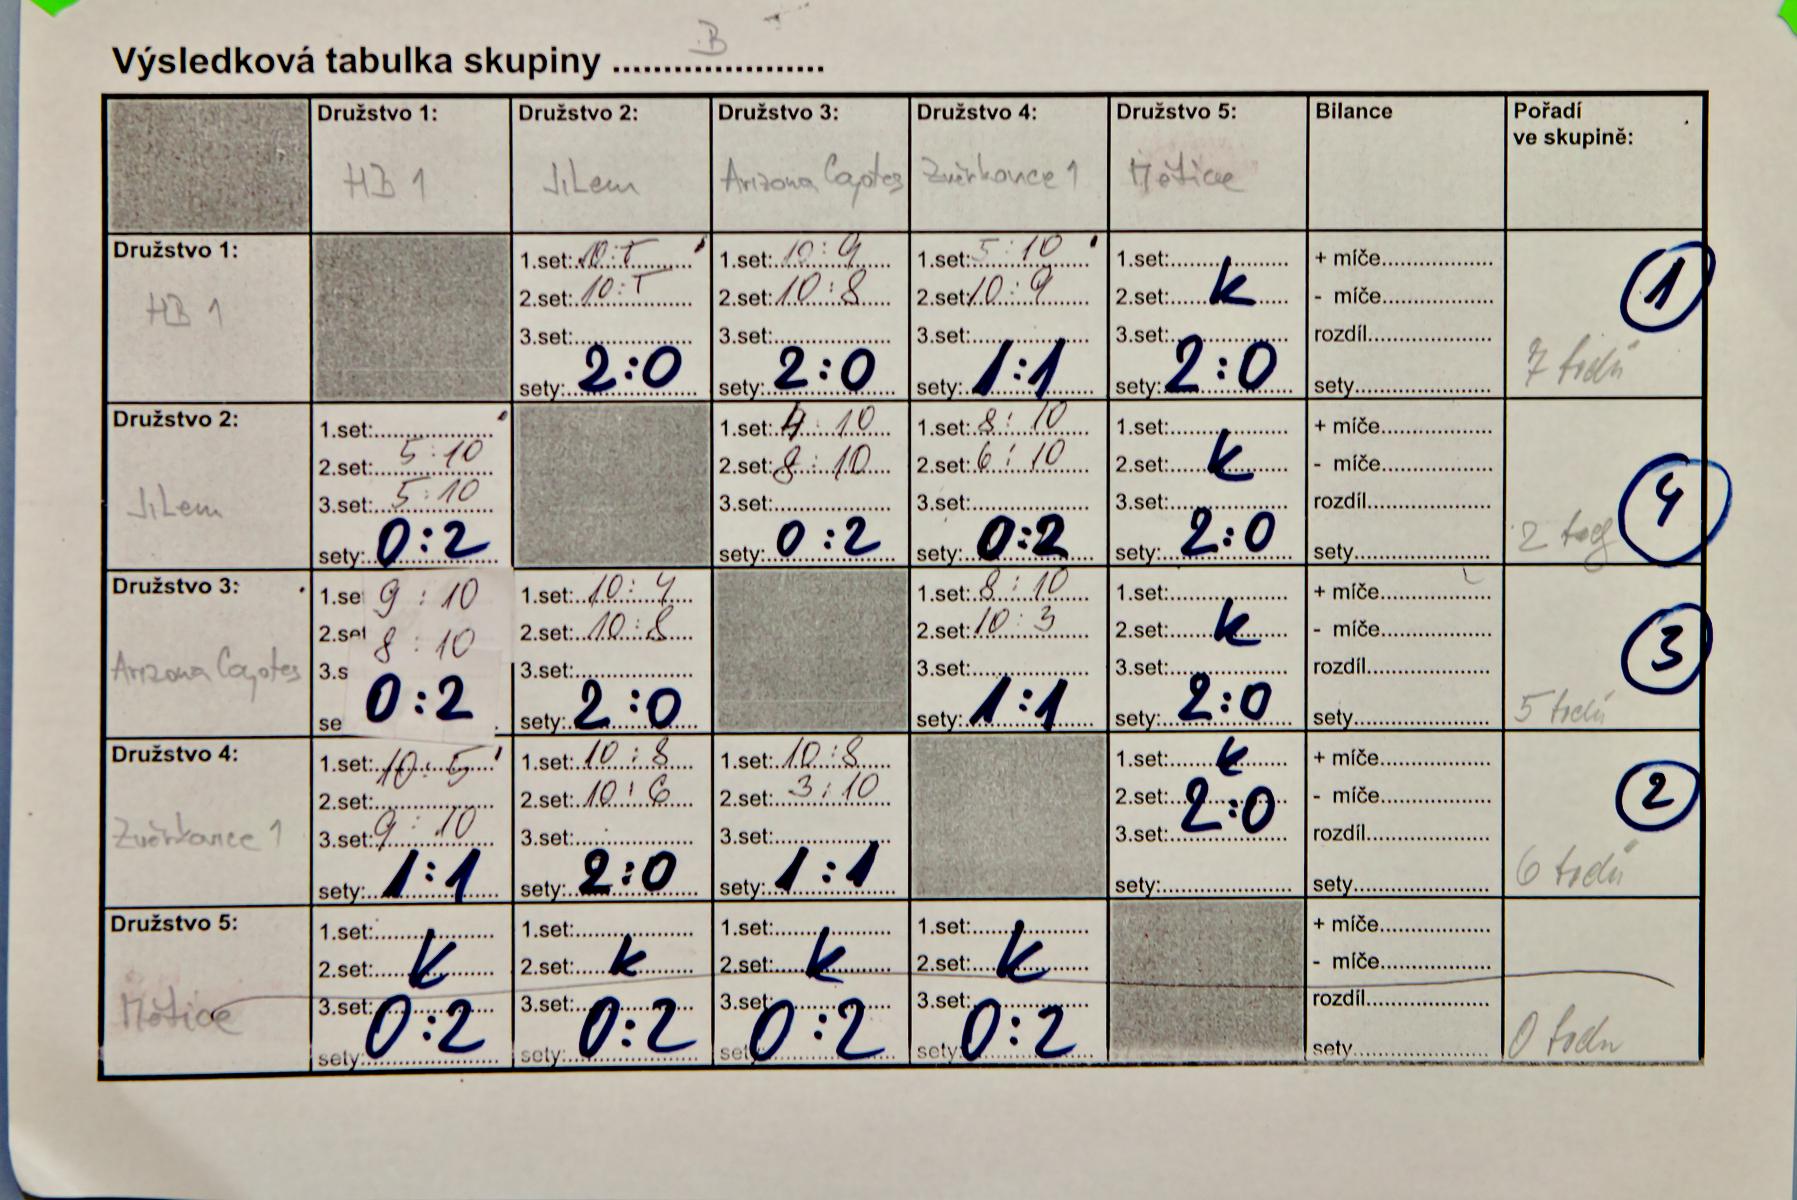 Výsledková tabulka skupiny ..................... B
Družstvo 1: Družstvo 2: Družstvo 3: Družstvo 4: Družstvo 5: Bilance Pořadí
ve skupině:
HB 1 JiLem Arizona Cayotes Zvěrkovice 1 Mětice
Družstvo 1:
HB 1
1.set: 10:5 1.set: 10:9 1.set: 5:10 1.set: + míče
2.set: 10:5 2.set: 10:8 2.set: 10:9 2.set: k - míče 1
3.set: 3.set: 3.set: 3.set: rozdíl
sety: 2:0 sety: 2:0 sety: 1:1 sety: 2:0 sety 7 bodů
Družstvo 2:
JiLem
1.set: 1.set: 4:10 1.set: 8:10 1.set: + míče
2.set: 5:10 2.set: 8:10 2.set: 6:10 2.set: k - míče 4
3.set: 5:10 3.set: 3.set: 3.set: rozdíl
sety: 0:2 sety: 0:2 sety: 0:2 sety: 2:0 sety 2 body
Družstvo 3:
Arizona Cayotes
1.se 9:10 1.set: 10:4 1.set: 8:10 1.set: + míče
2.set 8:10 2.set: 10:8 2.set: 10:3 2.set: k - míče 3
3.s 3.set: 3.set: 3.set: rozdíl
se 0:2 sety: 2:0 sety: 1:1 sety: 2:0 sety 5 bodů
Družstvo 4:
Zvěrkovice 1
1.set: 10:5 1.set: 10:8 1.set: 10:8 1.set: k + míče
2.set: 2.set: 10:6 2.set: 3:10 2.set: 2:0 - míče 2
3.set: 9:10 3.set: 3.set: 3.set: rozdíl
sety: 1:1 sety: 2:0 sety: 1:1 sety: sety 6 bodů
Družstvo 5:
Mětice
1.set: 1.set: 1.set: 1.set: + míče
2.set: k 2.set: k 2.set: k 2.set: k - míče
3.set: 3.set: 3.set: 3.set: rozdíl
sety: 0:2 sety: 0:2 sety 0:2 sety: 0:2 sety 0 bodů